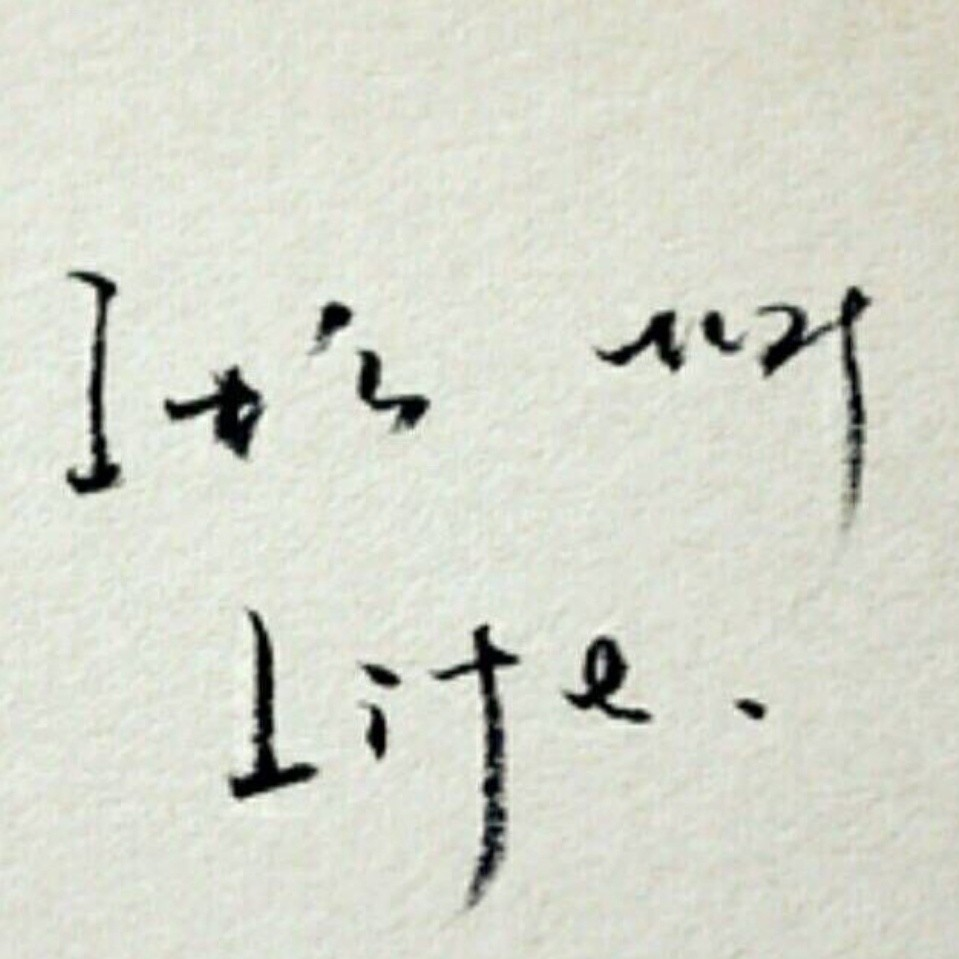 It's my
life.